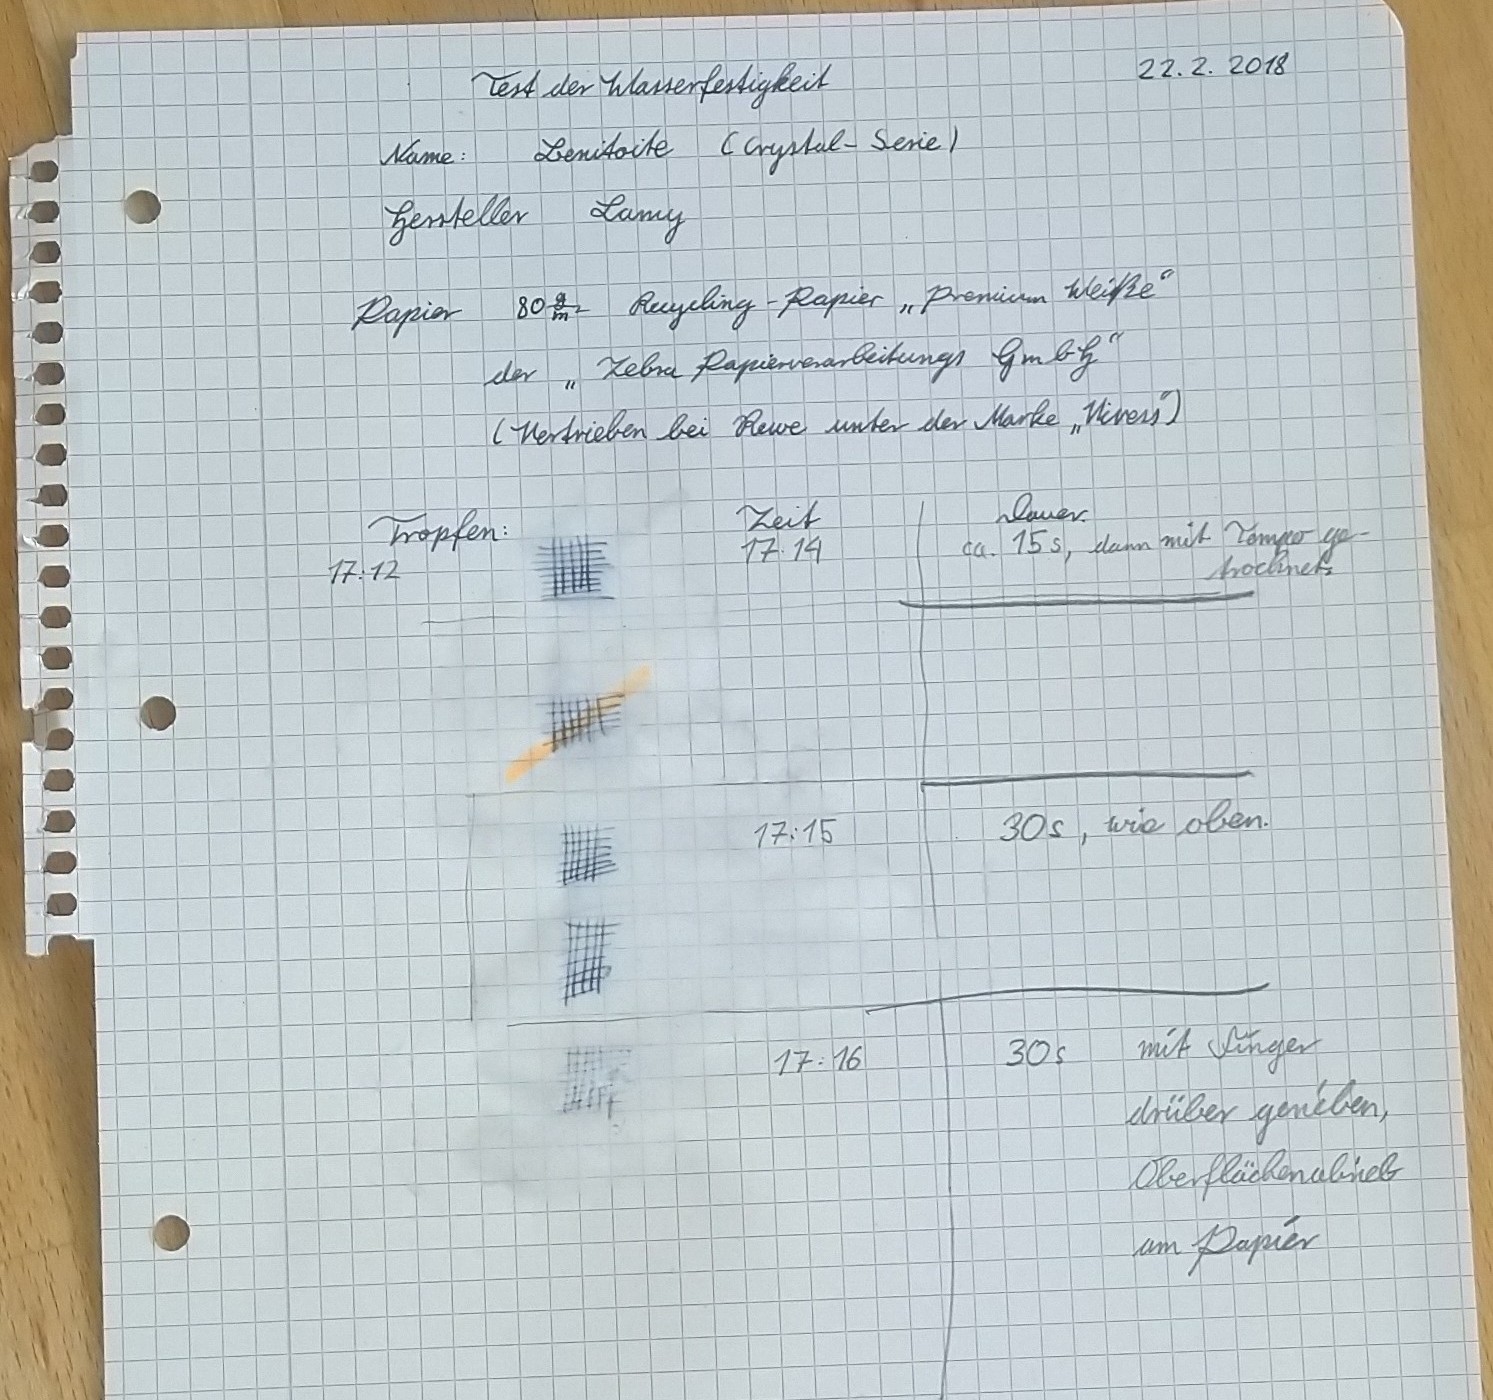 Test der Wasserfestigkeit 22.2.2018
Name: Benitoite (Crystal-Serie)
Hersteller Lamy
Papier 80 g/m² Recycling-Papier „Premium Weiße“
der „Zebra Papierverarbeitungs GmbH“
(Vertrieben bei Rewe unter der Marke „Vivess“)
Tropfen: Zeit Dauer
17:12 17:14 ca. 15s, dann mit Tempo ge-
trocknet.
17:15 30s, wie oben.
17:16 30s mit Finger
drüber gerieben,
Oberflächenabrieb
am Papier